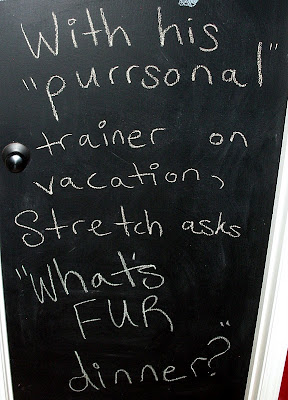 With his
"purrsonal"
trainer on
vacation,
Stretch asks
"What's
FUR
dinner?"